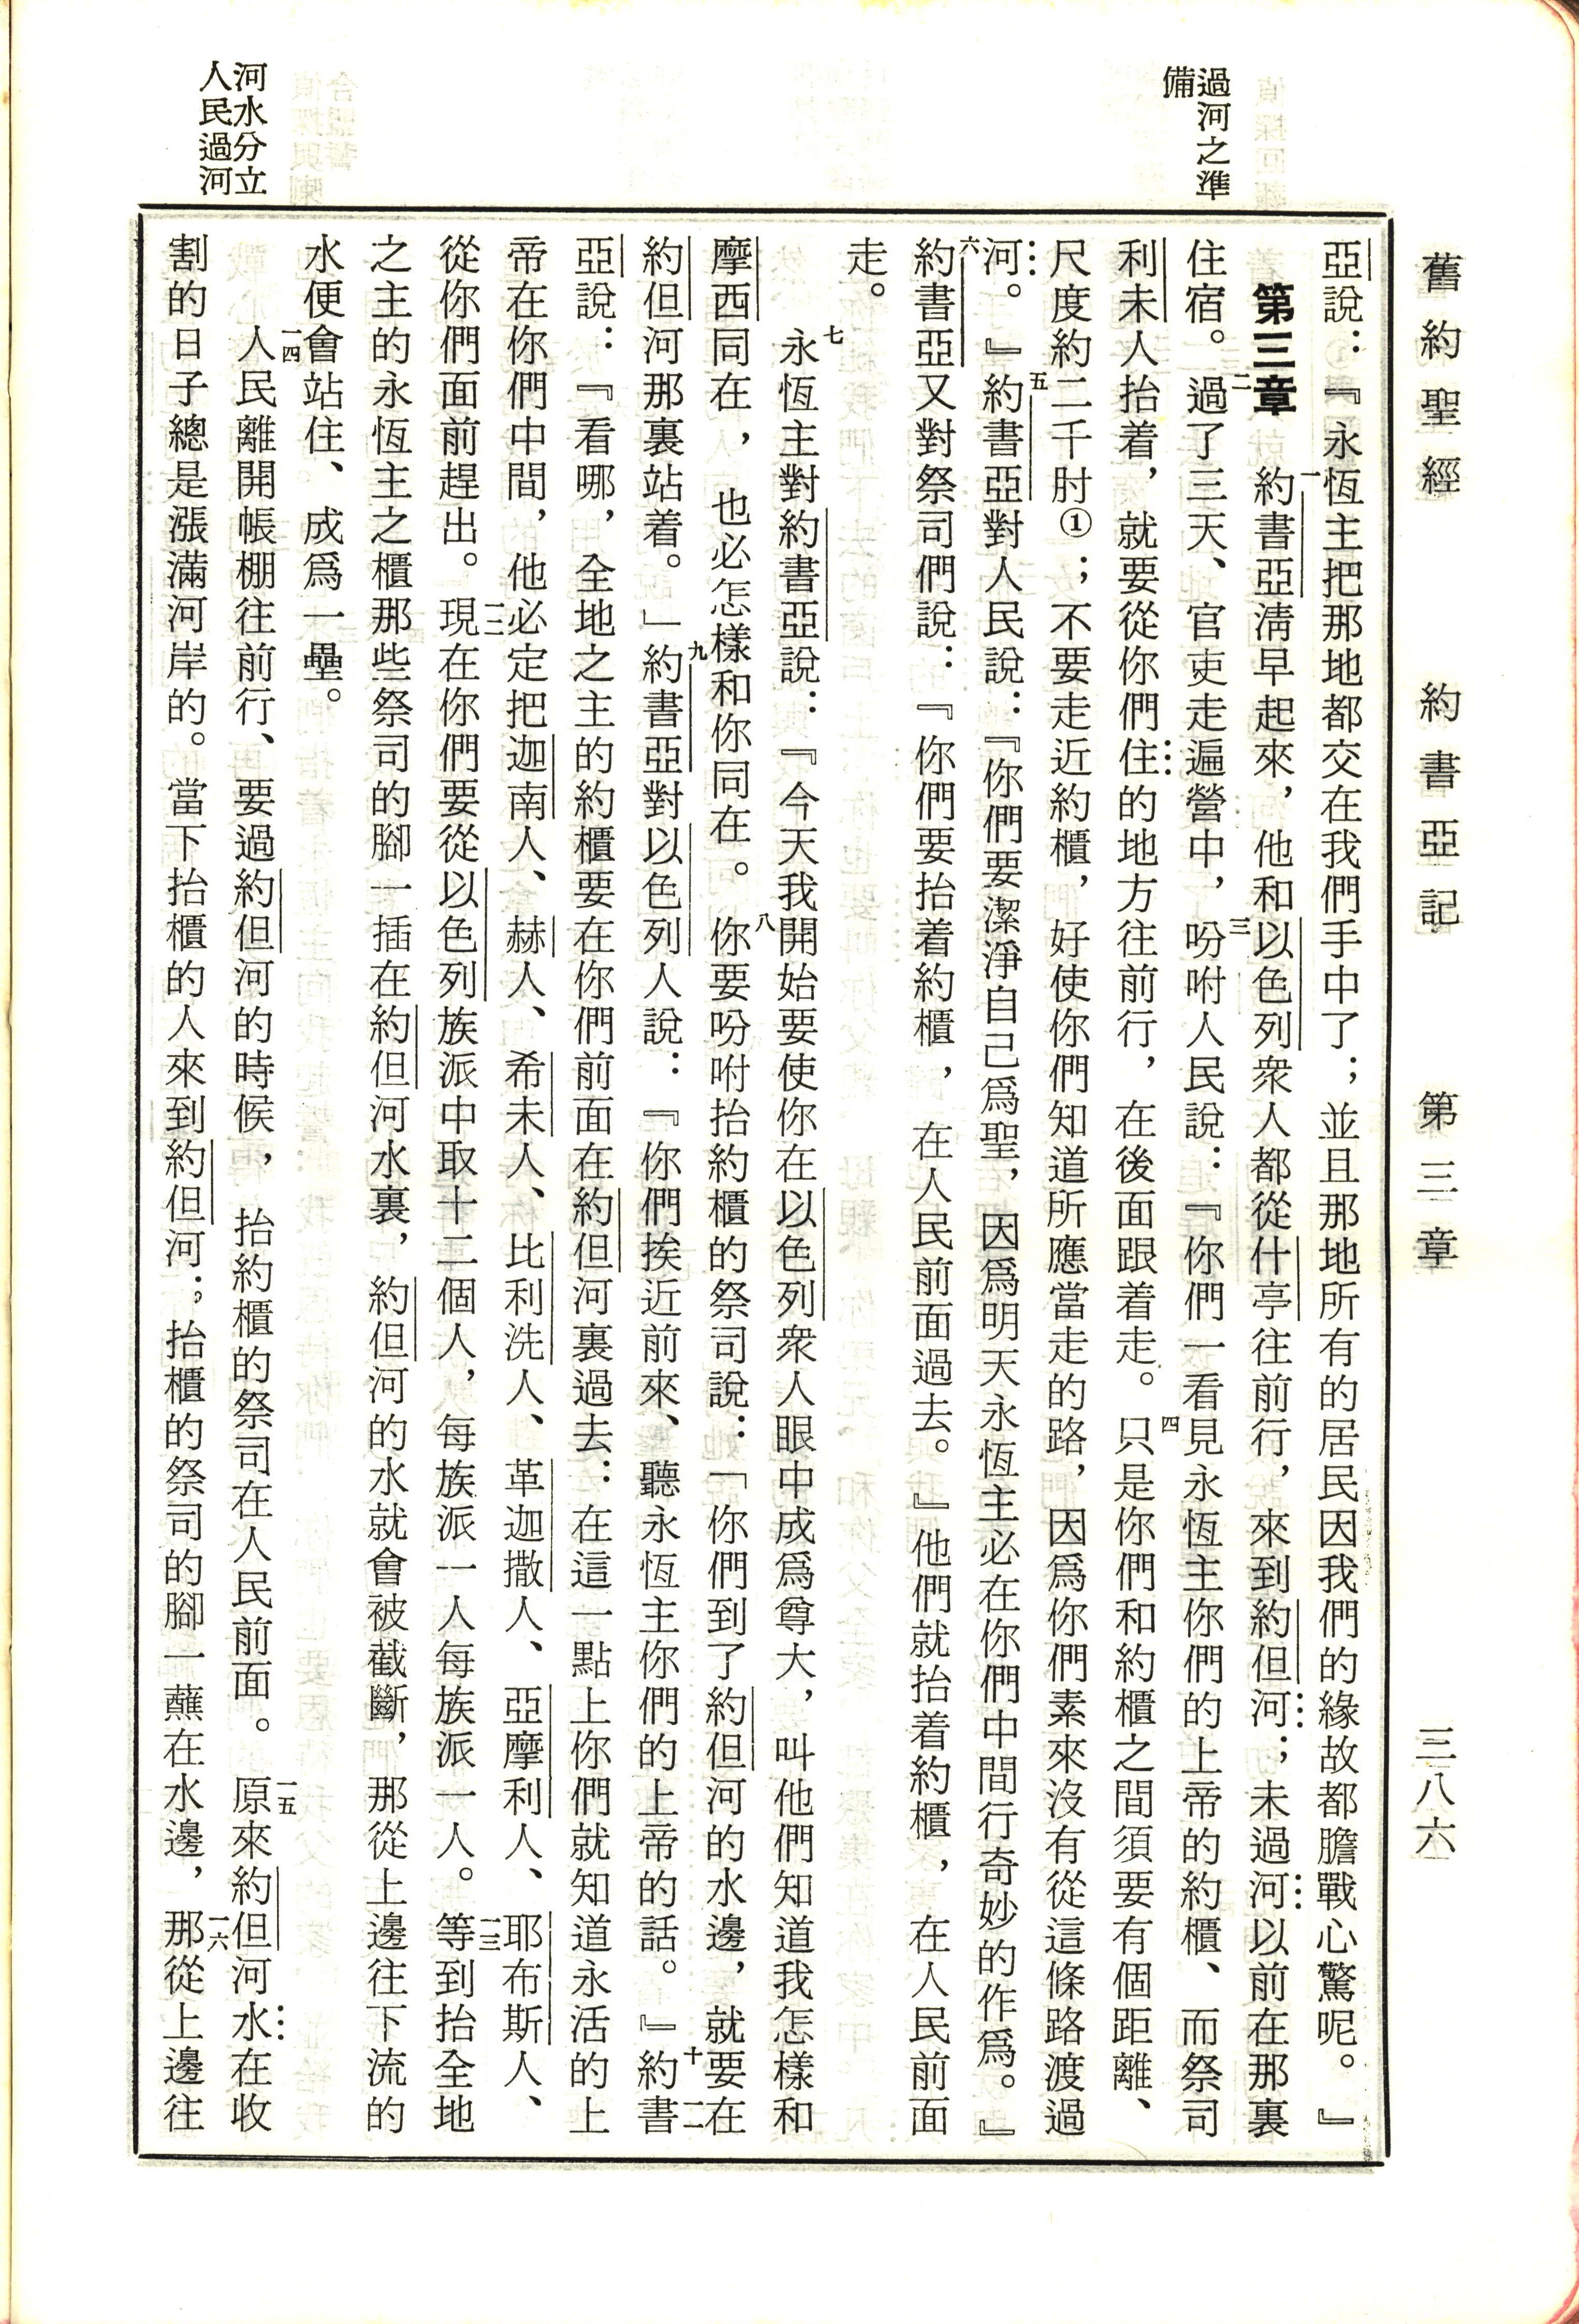 舊約聖經　約書亞記　第三章　三八六
過河之準
備
河水分立
人民過河
亞說：『永恆主把那地都交在我們手中了；並且那地所有的居民因我們的緣故都膽戰心驚呢。』
第三章　一約書亞淸早起來，他和以色列衆人都從什亭往前行，來到約但河；未過河以前在那裏
住宿。二過了三天、官吏走遍營中，三吩咐人民說：『你們一看見永恆主你們的上帝的約櫃、而祭司
利未人抬着，就要從你們住的地方往前行，在後面跟着走。四只是你們和約櫃之間須要有個距離、
尺度約二千肘①；不要走近約櫃，好使你們知道所應當走的路，因爲你們素來沒有從這條路渡過
河。』五約書亞對人民說：『你們要潔淨自己爲聖，因爲明天永恆主必在你們中間行奇妙的作爲。』
六約書亞又對祭司們說：『你們要抬着約櫃，在人民前面過去。』他們就抬着約櫃，在人民前面
走。
七永恆主對約書亞說：『今天我開始要使你在以色列衆人眼中成爲尊大，叫他們知道我怎樣和
摩西同在，也必怎樣和你同在。八你要吩咐抬約櫃的祭司說：「你們到了約但河的水邊，就要在
約但河那裏站着。」九約書亞對以色列人說：『你們挨近前來、聽永恆主你們的上帝的話。』十約書
亞說：『看哪，全地之主的約櫃要在你們前面在約但河裏過去：在這一點上你們就知道永活的上
帝在你們中間，他必定把迦南人、赫人、希未人、比利洗人、革迦撒人、亞摩利人、耶布斯人、
從你們面前趕出。一二現在你們要從以色列族派中取十二個人，每族派一人每族派一人。一三等到抬全地
之主的永恆主之櫃那些祭司的腳一插在約但河水裏，約但河的水就會被截斷，那從上邊往下流的
水便會站住、成爲一壘。
一四人民離開帳棚往前行、要過約但河的時候，抬約櫃的祭司在人民前面。一五原來約但河水在收
割的日子總是漲滿河岸的。當下抬櫃的人來到約但河；抬櫃的祭司的腳一蘸在水邊，一六那從上邊往